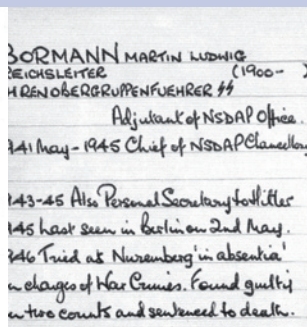 BORMANN MARTIN LUDWIG
EICHSLEITER (1900-
HRENOBERGRUPPENFUEHRER SS
Adjutant of NSDAP Office.
941 May - 1945 Chief of NSDAP Chancellery
943-45 Also Personal Secretary to Hitler
945 Last seen in Berlin on 2nd May.
946 Tried at Nuremberg 'in absentia'
n charges of War Crimes. Found guilty
n two counts and sentenced to death.